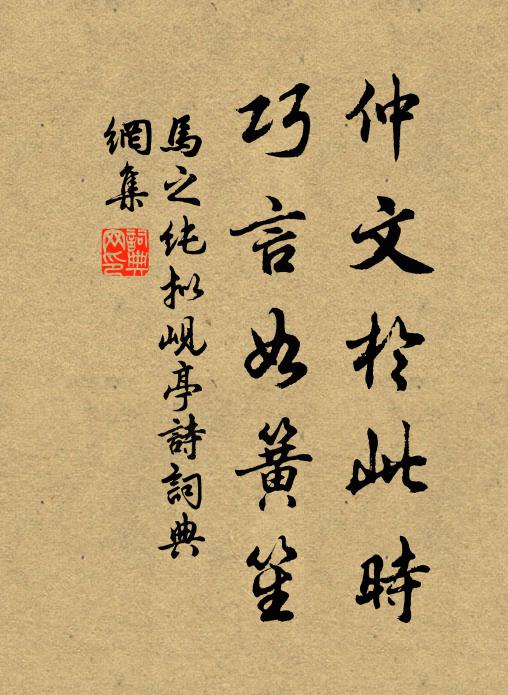 仲文於此時
巧言如簧笙
馬之純拟峴亭詩詞典
網集
詞典
网印